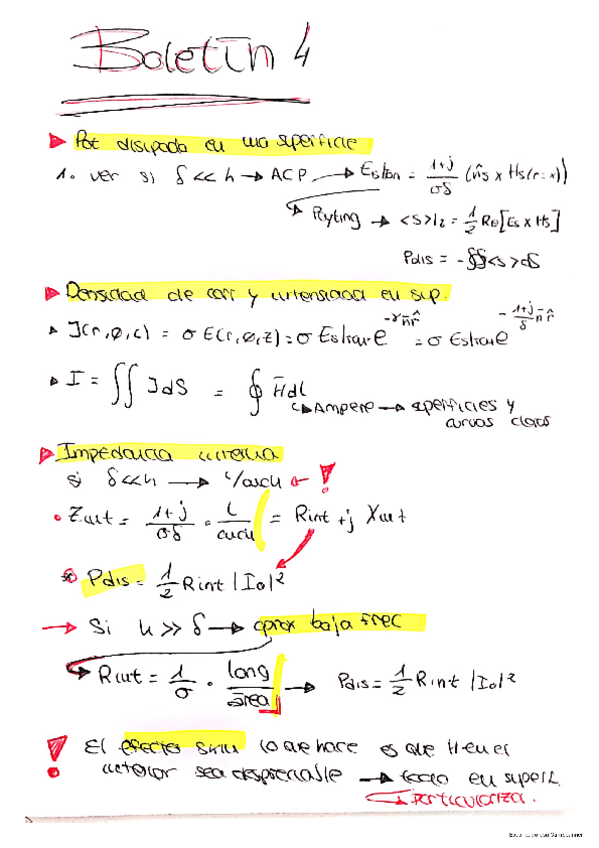 Boletín 4
▶ Pot disipada en una superficie
1. ver si δ << h → ACP → Es tan = (1+j)/(σδ) (n̂s x Hs(r=a))
↳ Poyting → <S>|z = 1/2 Re[Es x Hs]
Pdis = -∯<s>dS
▶ Densidad de corr y intensidad en sup.
▶ J(r,φ,z) = σ E(r,φ,z) = σ Estan e^(-γ n̄ r̂) = σ Estan e^(-(1+j)/δ n̄ r̂)
▶ I = ∬ J dS = ∮ H̄dl
↳ Ampere → superficies y
curvas claras
▶ Impedancia interna
si δ<<h → l/anch ← !
• Zint = (1+j)/(σδ) · l/anch = Rint + j Xint
Pdis = 1/2 Rint |Io|²
→ Si h >> δ → aprox baja frec
↳ Rint = 1/σ · long/área → Pdis = 1/2 Rint |Io|²
! El efecto skin lo que hace es que H en el
interior sea despreciable → todo en superf.
↳ Particulariza.